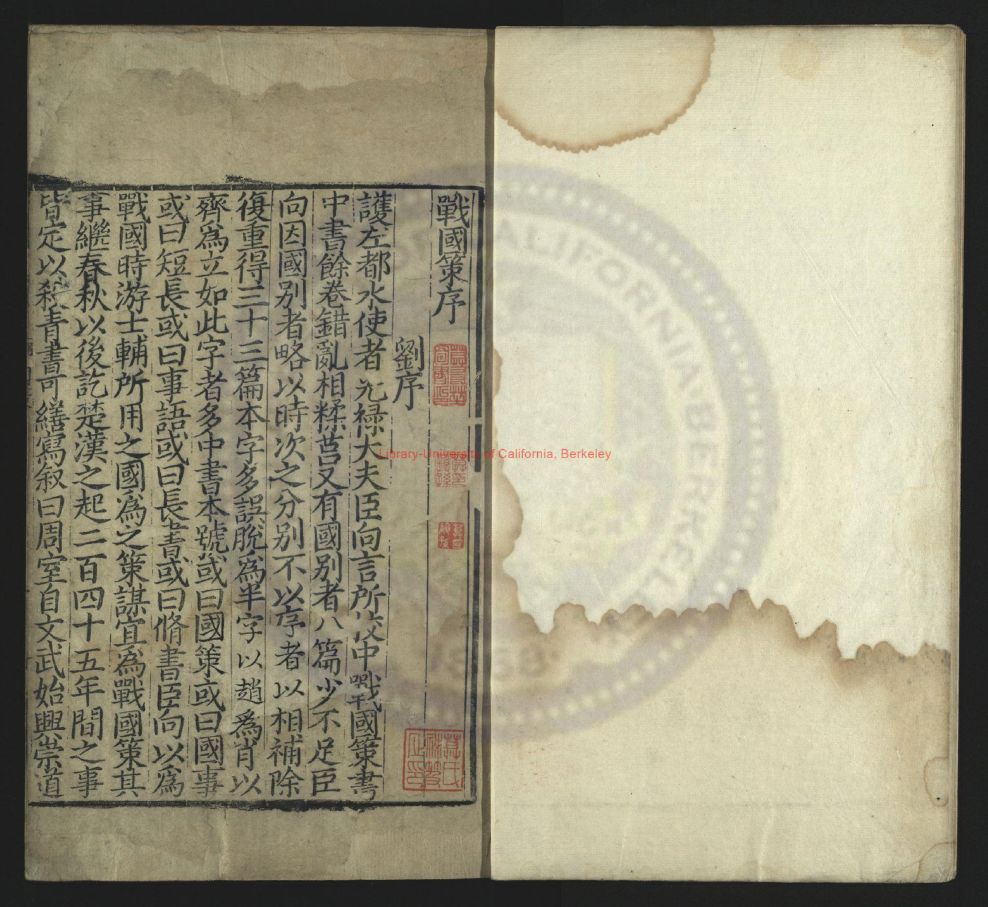 戰國策序
劉序
護左都水使者光祿大夫臣向言所校中戰國策書
中書餘卷錯亂相糅莒又有國别者八篇少不足臣
向因國别者略以時次之分别不以序者以相補除
復重得三十三篇本字多誤脫爲半字以趙爲肖以
齊爲立如此字者多中書本號或曰國策或曰國事
或曰短長或曰事語或曰長書或曰脩書臣向以爲
戰國時游士輔所用之國爲之策謀宜爲戰國策其
事繼春秋以後訖楚漢之起二百四十五年間之事
皆定以殺青書可繕寫叙曰周室自文武始興崇道
Library-University of California, Berkeley